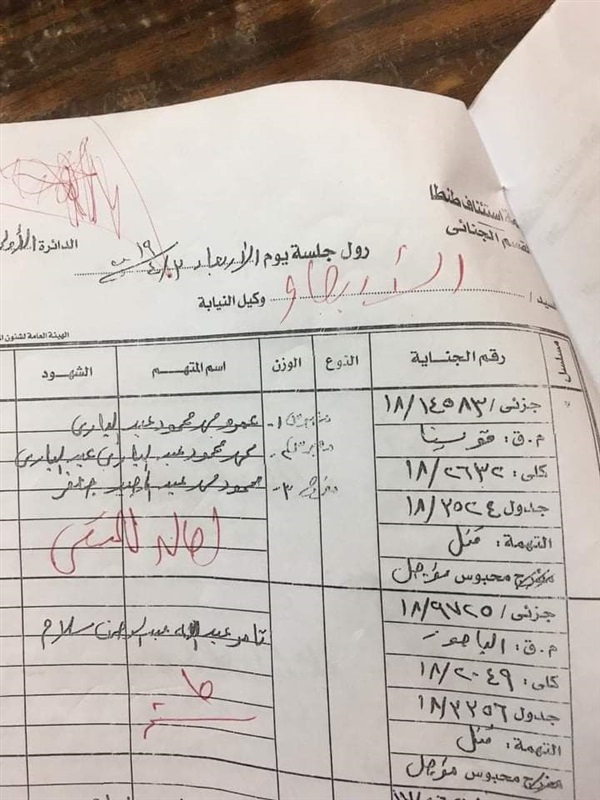 استئناف طنطا
القسم الجنائى
الدائرة الأولى
رول جلسة يوم الأربعاء ١٩/٤/٣
الأربعاء
السيد / وكيل النيابة
الهيئة العامة لشئون
مسلسل رقم الجناية النوع الوزن اسم المتهم الشهود
جزئى / ١٨/١٤٥٨٣
م.ق: قويسنا
كلى: ١٨/٢٦٣٢
جدول ١٨/٣٥٢٤
التهمة: قتل
محبوس مؤجل
١- عمرو محمد محمود عبد البارى
محمد محمود عبد البارى عبد البارى
٣- محمود محمد عبد
جزئى / ١٨/٩٧٢٥
م.ق: الباجور
كلى: ١٨/٢٠٤٩
جدول ١٨/٣٢٥٦
التهمة: قتل
محبوس مؤجل
تامر عبد الله عبد الرحمن سلام